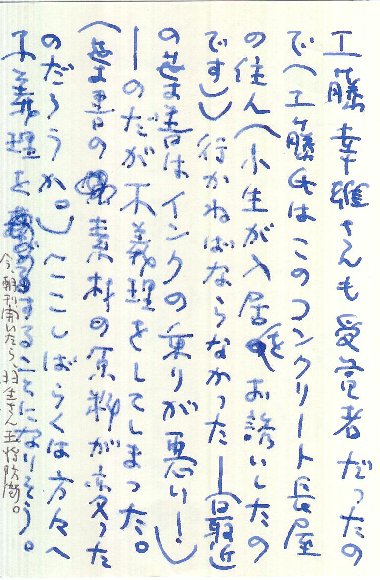 工藤幸雄さんも受賞者だったの
で（工藤氏はこのコンクリート長屋
の住人（小生が入居をお誘いしたの
です））行かねばならなかった—（最近
の葉書はインクの乗りが悪い！）
—のだが不義理をしてしまった。
（葉書の素材の原料が変った
のだろうか。）〜ここしばらくは方々へ
不義理をすることになりそう。
今、朝刊開いたら、羽生さん王将防衛。